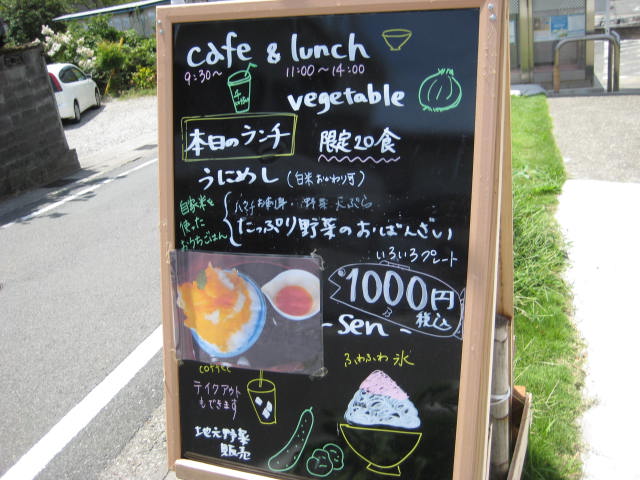 cafe & lunch
9:30～ 11:00～14:00
vegetable
本日のランチ 限定20食
うにめし (白米おかわり可)
自家米を
使った
おうちごはん
お刺身・野菜天ぷら
たっぷり野菜のおばんざい
いろいろプレート
1000円
税込
-sen-
ふわふわ氷
coffee
テイクアウト
もできます
地元野菜
販売